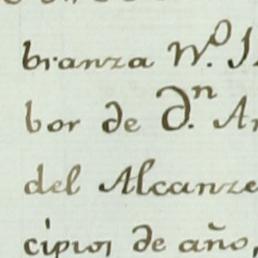 branza N.º 1
bor de d.n A
del Alcanze
cipios de año,